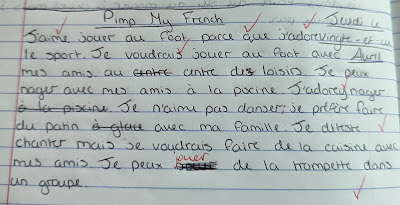 Pimp My French Jeudi le
J'aime jouer au foot, parce que j'adore vingt-et-un
le sport. Je voudrais jouer au foot avec Avril
mes amis au centre centre des loisirs. Je peux
nager avec mes amis à la piscine. J'adore nager
à la piscine. Je n'aime pas danser; je préfère faire
du patin à glace avec ma famille. Je déteste
chanter mais je voudrais faire de la cuisine avec
mes amis. Je peux jouer de la trompette dans
un groupe.